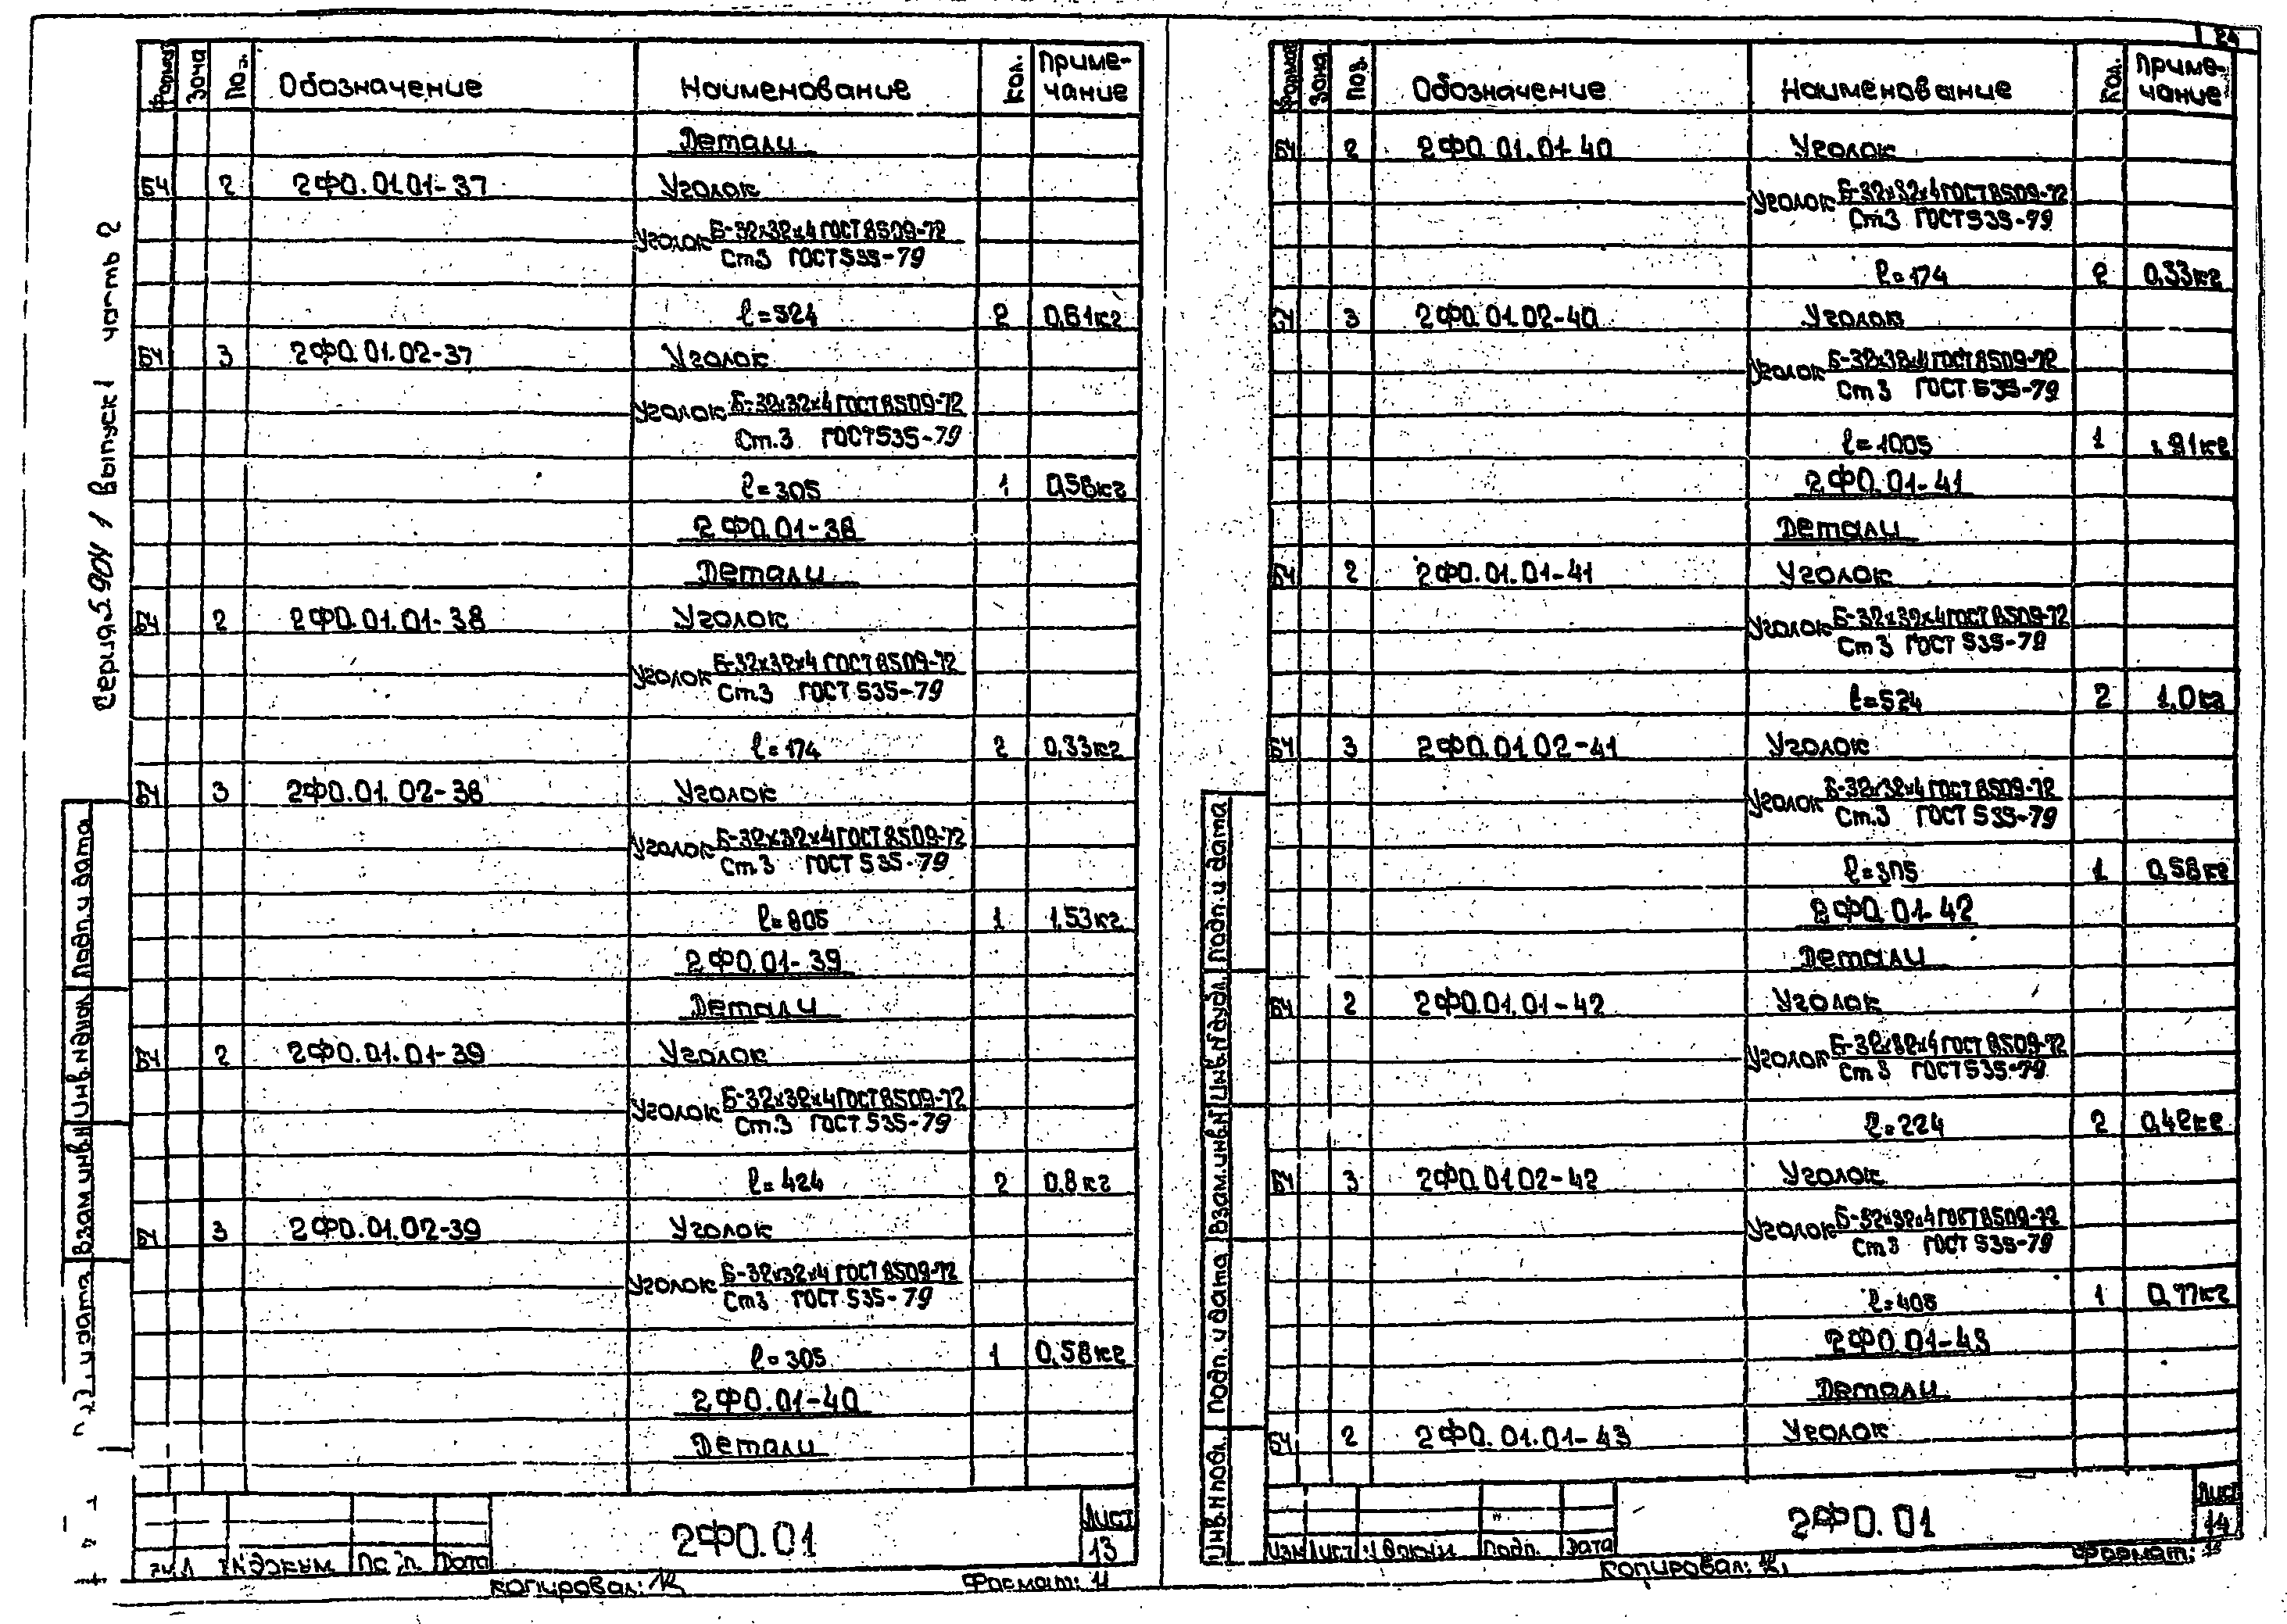 24
Серия 5.904 1 Выпуск 1 часть 2
Формат Зона Поз. Обозначение Наименование Кол. Приме-
чание
Детали
БЧ 2 2ФО.01.01-37 Уголок
Уголок Б-32х32х4 ГОСТ 8509-72
Ст3 ГОСТ 535-79
ℓ=324 2 0,61кг
БЧ 3 2ФО.01.02-37 Уголок
Уголок Б-32х32х4 ГОСТ 8509-72
Ст.3 ГОСТ 535-79
ℓ=305 1 0,58кг
2ФО.01-38
Детали
БЧ 2 2ФО.01.01-38 Уголок
Уголок Б-32х32х4 ГОСТ 8509-72
Ст.3 ГОСТ 535-79
ℓ=174 2 0,33кг
БЧ 3 2ФО.01.02-38 Уголок
Уголок Б-32х32х4 ГОСТ 8509-72
Ст.3 ГОСТ 535-79
ℓ=805 1 1,53кг
2ФО.01-39
Детали
БЧ 2 2ФО.01.01-39 Уголок
Уголок Б-32х32х4 ГОСТ 8509-72
Ст.3 ГОСТ 535-79
ℓ=424 2 0,8кг
БЧ 3 2ФО.01.02-39 Уголок
Уголок Б-32х32х4 ГОСТ 8509-72
Ст3 ГОСТ 535-79
ℓ=305 1 0,58кг
2ФО.01-40
Детали
Подп. и дата
Инв.N дубл.
Взам.инв.N
и дата
2ФО.01
Лист
13
Дата
Копировал:
Формат: 11
Формат Зона Поз. Обозначение Наименование Кол. Приме-
чание
БЧ 2 2ФО.01.01-40 Уголок
Уголок Б-32х32х4 ГОСТ 8509-72
Ст3 ГОСТ 535-79
ℓ=174 2 0,33кг
БЧ 3 2ФО.01.02-40 Уголок
Уголок Б-32х32х4 ГОСТ 8509-72
Ст3 ГОСТ 535-79
ℓ=1005 1 1,91кг
2ФО.01-41
Детали
БЧ 2 2ФО.01.01-41 Уголок
Уголок Б-32х32х4 ГОСТ 8509-72
Ст3 ГОСТ 535-79
ℓ=524 2 1,0кг
БЧ 3 2ФО.01.02-41 Уголок
Уголок Б-32х32х4 ГОСТ 8509-72
Ст.3 ГОСТ 535-79
ℓ=305 1 0,58кг
2ФО.01-42
Детали
БЧ 2 2ФО.01.01-42 Уголок
Уголок Б-32х32х4 ГОСТ 8509-72
Ст3 ГОСТ 535-79
ℓ=224 2 0,42кг
БЧ 3 2ФО.01.02-42 Уголок
Уголок Б-32х32х4 ГОСТ 8509-72
Ст3 ГОСТ 535-79
ℓ=405 1 0,77кг
2ФО.01-43
Детали
БЧ 2 2ФО.01.01-43 Уголок
Подп. и дата
Инв.N дубл.
Взам.инв.N
Подп. и дата
Инв.N подл.
2ФО.01
Лист
14
Изм Лист N докум Подп. Дата
Копировал:
Формат: 11